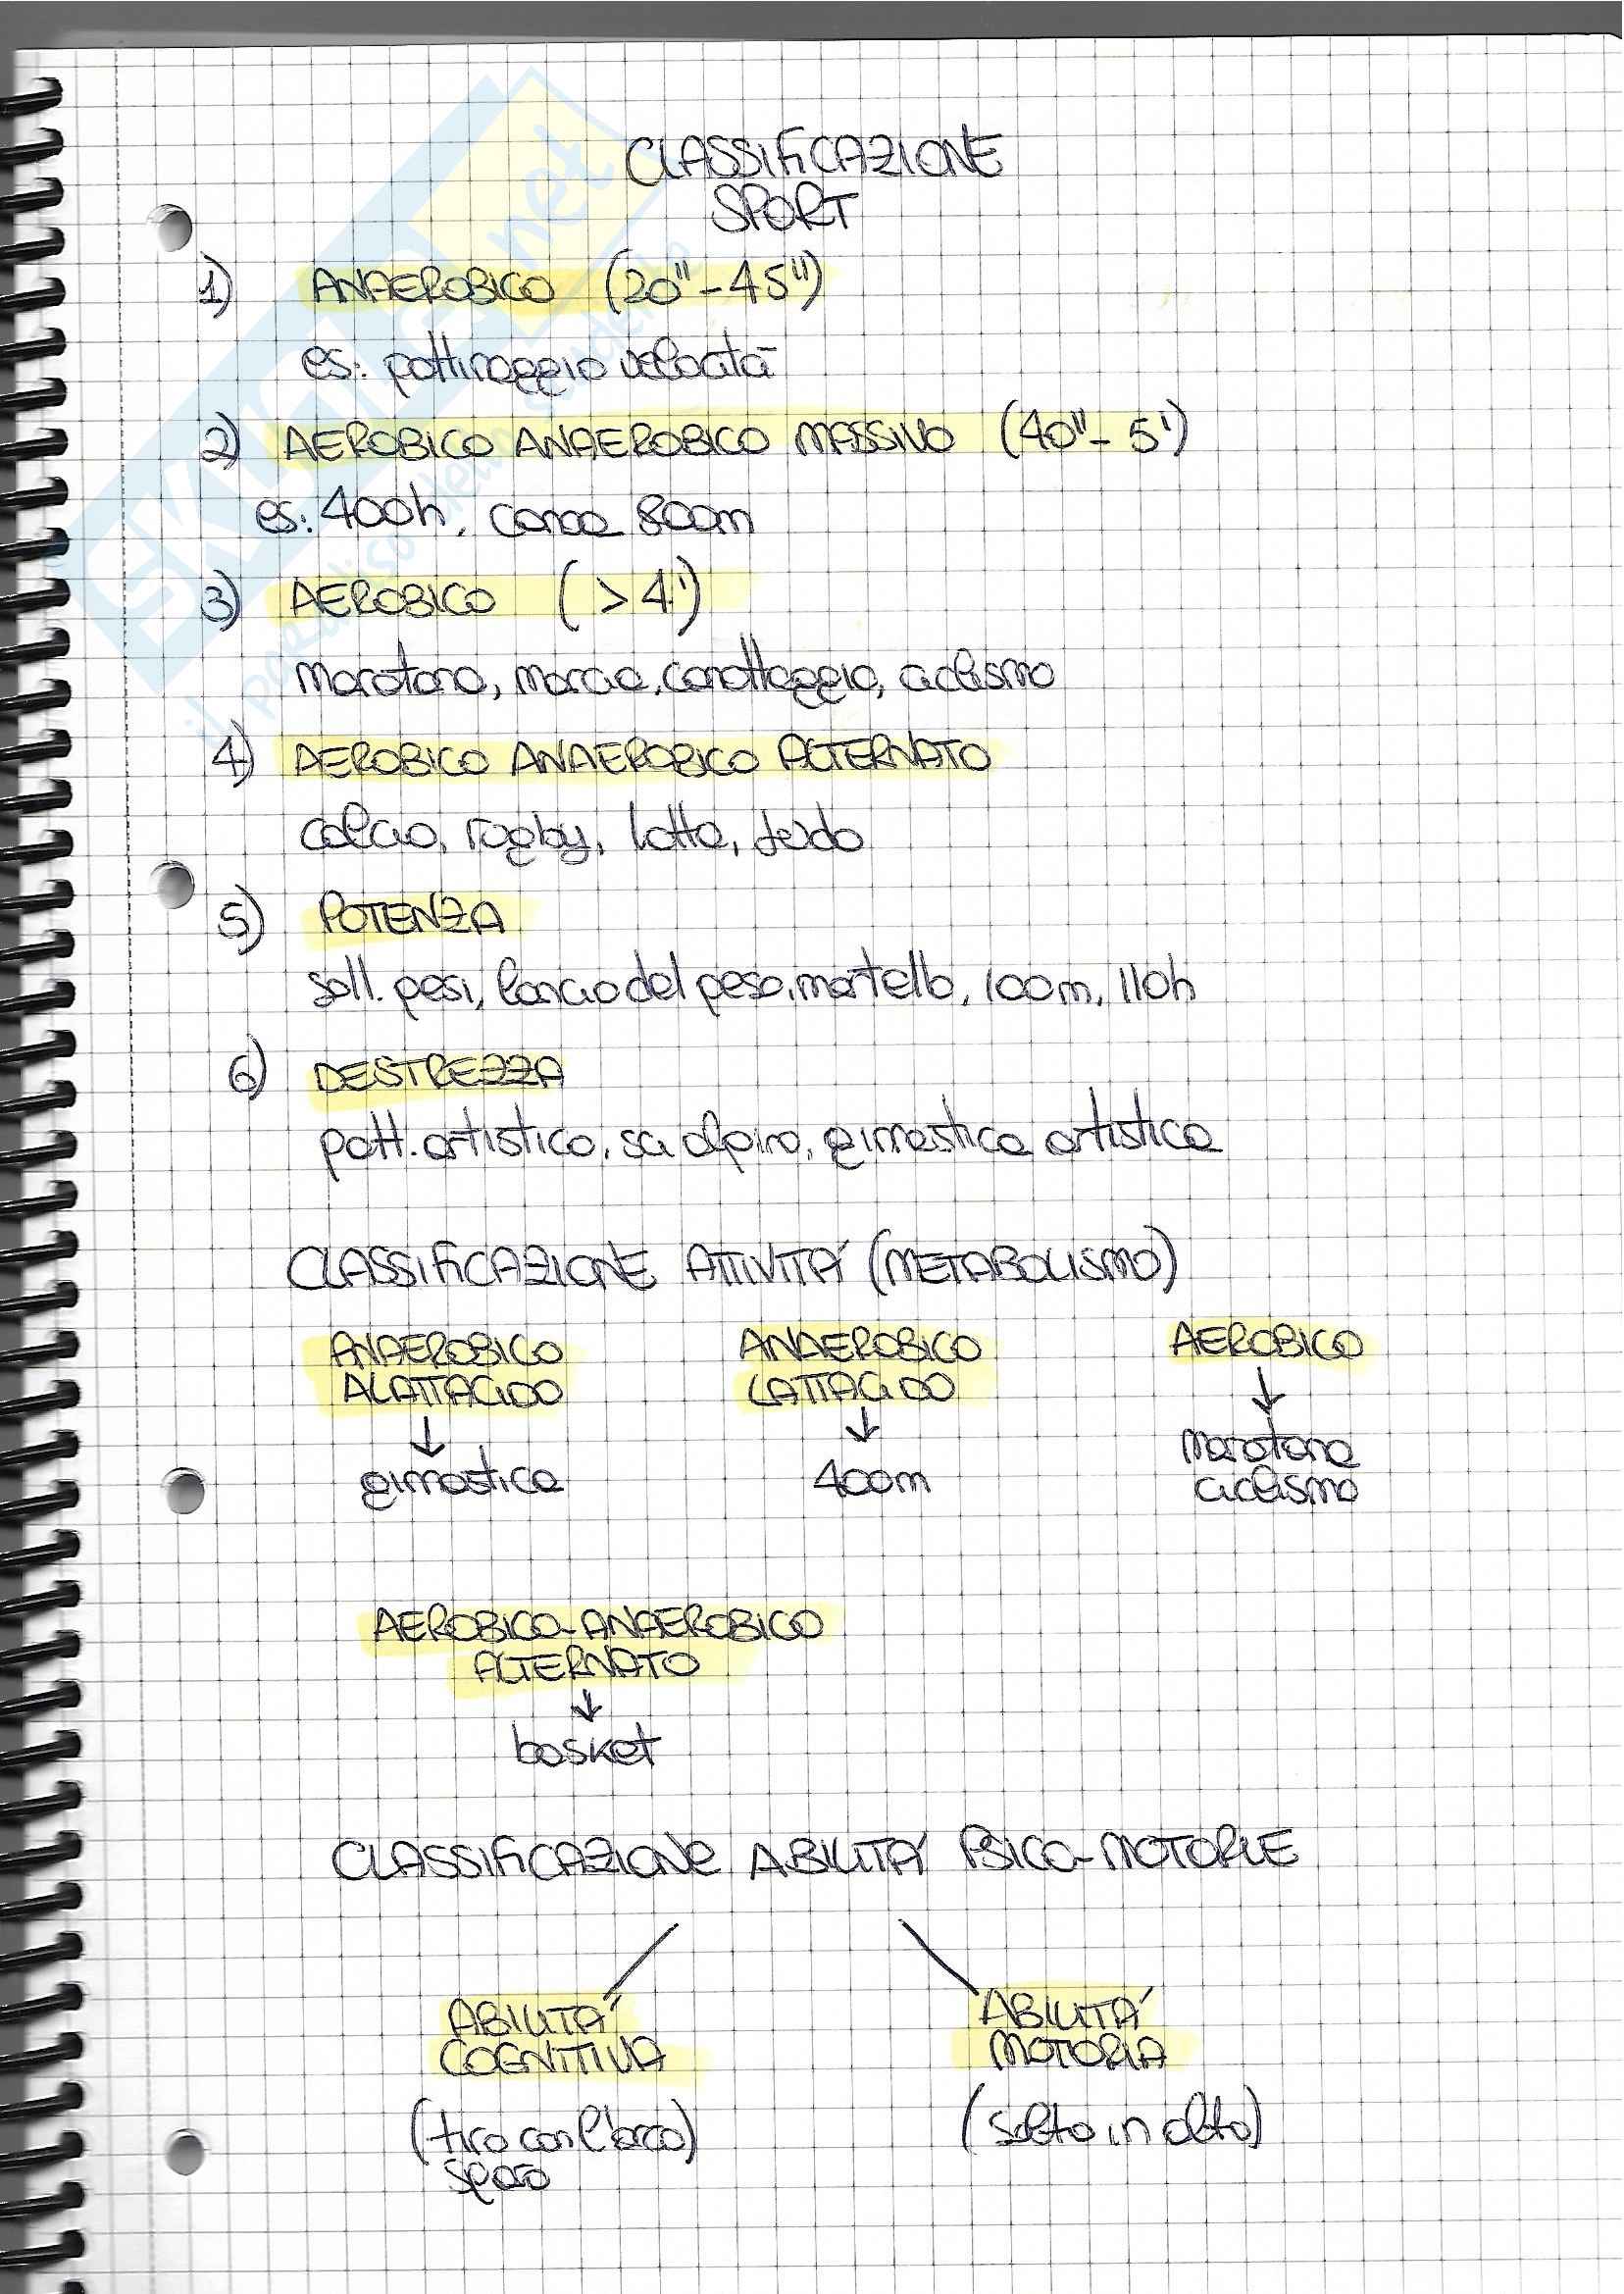 CLASSIFICAZIONE
SPORT
1) ANAEROBICO (20"-45")
es: pattinaggio velocità
2) AEROBICO ANAEROBICO MASSIVO (40"-5')
es: 400h, corsa 800m
3) AEROBICO (>4')
maratona, marcia, canottaggio, ciclismo
4) AEROBICO ANAEROBICO ALTERNATO
calcio, rugby, lotta, judo
5) POTENZA
soll. pesi, lancio del peso, martello, 100m, 110h
6) DESTREZZA
patt. artistico, sci alpino, ginnastica artistica
CLASSIFICAZIONE ATTIVITÁ (METABOLISMO)
ANAEROBICO ANAEROBICO AEROBICO
ALATTACIDO LATTACIDO ↓
↓ ↓ maratona
ginnastica 400m ciclismo
AEROBICO-ANAEROBICO
ALTERNATO
↓
basket
CLASSIFICAZIONE ABILITÁ PSICO-MOTORIE
ABILITÁ ABILITÁ
COGNITIVA MOTORIA
(tiro con l'arco) (salto in alto)
sparo
SKUOLA.net